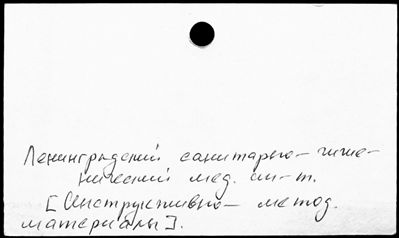 Ленинградский санитарно-гигие-
нический мед. ин-т.
[Инструктивно-метод.
материалы].